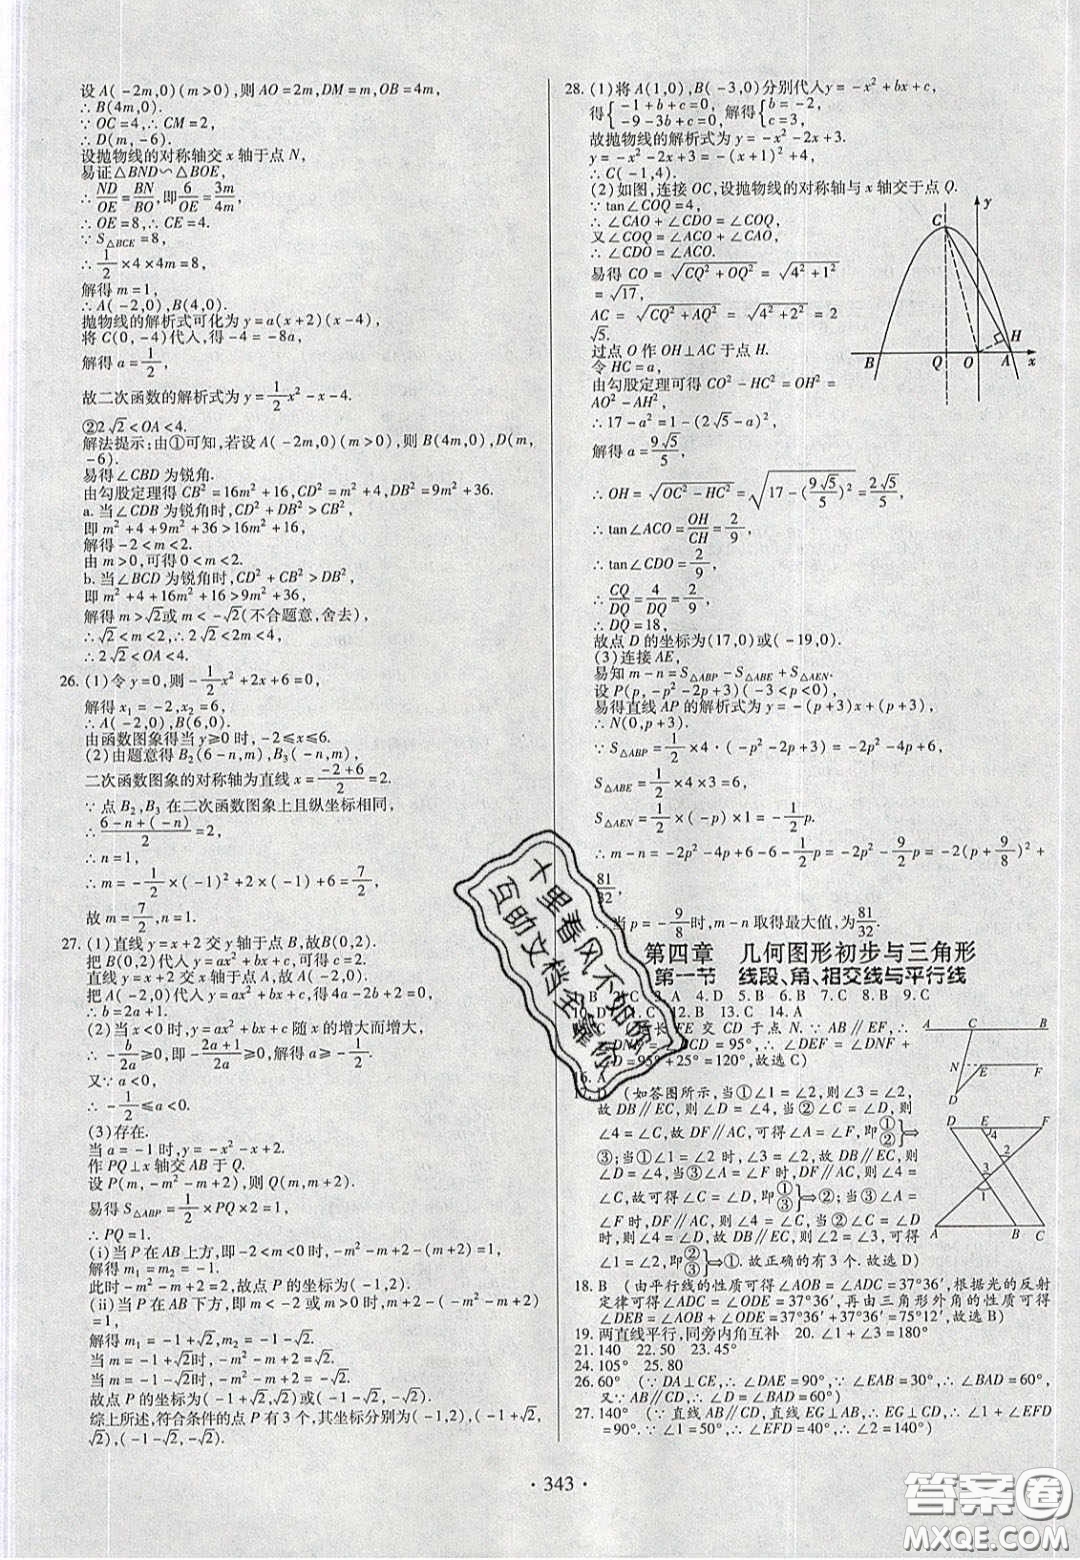 设A(-2m,0)(m>0),则AO=2m,DM=m,OB=4m,
∴B(4m,0).
∵OC=4,∴CM=2,
∴D(m,-6).
设抛物线的对称轴交x轴于点N,
易证△BND∽△BOE,
∴ND/OE=BN/BO,即6/OE=3m/4m,
∴OE=8,∴CE=4.
∵S△BCE=8,
∴1/2×4×4m=8,
解得m=1,
∴A(-2,0),B(4,0).
抛物线的解析式可化为y=a(x+2)(x-4),
将C(0,-4)代入,得-4=-8a,
解得a=1/2,
故二次函数的解析式为y=1/2x²-x-4.
②2√2<OA<4.
解法提示:由①可知,若设A(-2m,0)(m>0),则B(4m,0),D(m,
-6).
易得∠CBD为锐角.
由勾股定理得CB²=16m²+16,CD²=m²+4,DB²=9m²+36.
a.当∠CDB为锐角时,CD²+DB²>CB²,
即m²+4+9m²+36>16m²+16,
解得-2<m<2.
由m>0,可得0<m<2.
b.当∠BCD为锐角时,CD²+CB²>DB²,
即m²+4+16m²+16>9m²+36,
解得m>√2或m<-√2(不合题意,舍去),
∴√2<m<2,∴2√2<2m<4,
∴2√2<OA<4.
26.(1)令y=0,则-1/2x²+2x+6=0,
解得x₁=-2,x₂=6,
∴A(-2,0),B(6,0).
由函数图象得当y≥0时,-2≤x≤6.
(2)由题意得B₂(6-n,m),B₃(-n,m),
二次函数图象的对称轴为直线x=(-2+6)/2=2.
∵点B₂,B₃在二次函数图象上且纵坐标相同,
∴(6-n+(-n))/2=2,
∴n=1,
∴m=-1/2×(-1)²+2×(-1)+6=7/2,
故m=7/2,n=1.
27.(1)直线y=x+2交y轴于点B,故B(0,2).
把B(0,2)代入y=ax²+bx+c,得c=2.
直线y=x+2交x轴于点A,故A(-2,0),
把A(-2,0)代入y=ax²+bx+c,得
b=2a+1.
(2)当x<0时,y=ax²+bx+c随x的增大而增大,
∴-b/2a≥0,即-(2a+1)/2a≥0,解得a≥-1/2.
又∵a<0,
∴-1/2≤a<0.
(3)存在.
当a=-1时,y=-x²-x+2.
作PQ⊥x轴交AB于Q.
设P(m,-m²-m+2),则Q(m,m+2).
易得S△ABP=1/2×PQ×2=1,
∴PQ=1.
(i)当P在AB上方,即-2<m<0时,-m²-m+2-(m+2)=1,
解得m₁=m₂=-1.
此时-m²-m+2=2,故点P的坐标为(-1,2).
(ii)当P在AB下方,即m<-2或m>0时,m+2-(-m²-m+2)
=1,
解得m₁=-1+√2,m₂=-1-√2.
当m=-1+√2时,-m²-m+2=√2,
当m=-1-√2时,-m²-m+2=-√2.
故点P的坐标为(-1+√2,√2)或(-1-√2,-√2).
综上所述,符合条件的点P有3个,其坐标分别为(-1,2),(-1+√2,
√2),(-1-√2,-√2).
28.(1)将A(1,0),B(-3,0)分别代入y=-x²+bx+c,
得{-1+b+c=0,-9-3b+c=0,解得{b=-2,c=3,
故抛物线的解析式为y=-x²-2x+3.
y=-x²-2x+3=-(x+1)²+4,
∴C(-1,4).
(2)如图,连接OC,设抛物线的对称轴与x轴交于点Q.
∵tan∠COQ=4,
∴∠CAO+∠CDO=∠COQ,
又∠COQ=∠ACO+∠CAO,
∴∠CDO=∠ACO.
易得CO=√(CQ²+OQ²)=√(4²+1²)
=√17,
AC=√(CQ²+AQ²)=√(4²+2²)=2
√5.
过点O作OH⊥AC于点H.
令HC=a,
由勾股定理可得CO²-HC²=OH²=
AO²-AH²,
∴17-a²=1-(2√5-a)²,
解得a=9√5/5,
∴OH=√(OC²-HC²)=√(17-(9√5/5)²)=2√5/5,
∴tan∠ACO=OH/CH=2/9,
∴tan∠CDO=2/9,
∴CQ/DQ=4/DQ=2/9,
∴DQ=18,
故点D的坐标为(17,0)或(-19,0).
(3)连接AE,
易知m-n=S△ABP-S△ABE+S△AEN.
设P(p,-p²-2p+3)(-3<p<0),
易得直线AP的解析式为y=-(p+3)x+(p+3),
∴N(0,p+3).
∵S△ABP=1/2×4·(-p²-2p+3)=-2p²-4p+6,
S△ABE=1/2×4×3=6,
S△AEN=1/2×(-p)×1=-1/2p.
∴m-n=-2p²-4p-1/2p=-2p²-9/2p=-2(p+9/8)²+
81/32,
当p=-9/8时,m-n取得最大值,为81/32.
第四章 几何图形初步与三角形
第一节 线段、角、相交线与平行线
B C 3.A 4.D 5.B 6.C 7.C 8.B 9.C
10.D 12.B 13.C 14.A
C 长FE交CD于点N.∵AB∥EF,∴
∠DNF=∠BCD=95°,∴∠DEF=∠DNF+
∠D=95°+25°=120°,故选C)
16.A
17.D (如答图所示,当①∠1=∠2,则∠3=∠2,
故DB∥EC,则∠D=∠4,当②∠C=∠D,则
∠4=∠C,故DF∥AC,可得∠A=∠F,即①②}⇒
③;当①∠1=∠2时,∠3=∠2,故DB∥EC,则
∠D=∠4,当③∠A=∠F时,DF∥AC,则∠4=
∠C,故可得∠C=∠D,即①③}⇒②;当③∠A=
∠F时,DF∥AC,则∠4=∠C,当②∠C=∠D
时,则∠4=∠D,故DB∥EC,则∠2=∠3,可得
∠1=∠2,即②③}⇒①.故正确的有3个.故选D)
18.B (由平行线的性质可得∠AOB=∠ADC=37°36′,根据光的反射
定律可得∠ADC=∠ODE=37°36′,再由三角形外角的性质可得
∠DEB=∠AOB+∠ODE=37°36′+37°36′=75°12′,故选B)
19.两直线平行,同旁内角互补 20.∠1+∠3=180°
21.140 22.50 23.45°
24.105° 25.80
26.60° (∵DA⊥CE,∴∠DAE=90°,∵∠EAB=30°,∴∠BAD=60°,
又∵AB∥CD,∴∠D=∠BAD=60°)
27.140° (∵直线AB∥CD,直线EG⊥AB,∴EG⊥CD,∴∠EFD
=90°.∵∠1=50°,∴∠EFD=40°,∴∠2=140°)
y
C
H
B
Q
O
A
x
A
C
B
N
E
F
D
D
E
F
4
2
3
1
A
B
C
十里春风不如你
互助文档全靠你
·343·
答案卷
MXQE.COM